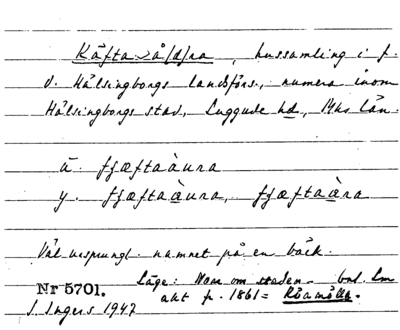 Käfta å(d)ra, hussamling i f.
d. Hälsingborgs landsförs., numera inom
Hälsingborgs stad, Luggude hd, Mhs län.
ä. fʃæftaàura
y. fʃæftaàura, fʃæftaàra
Väl urspungl. namnet på en bäck.
Läge: Norr om staden
Nr 5701.
akt fr. 1861 = Råamölla.
J. Ingers 1947